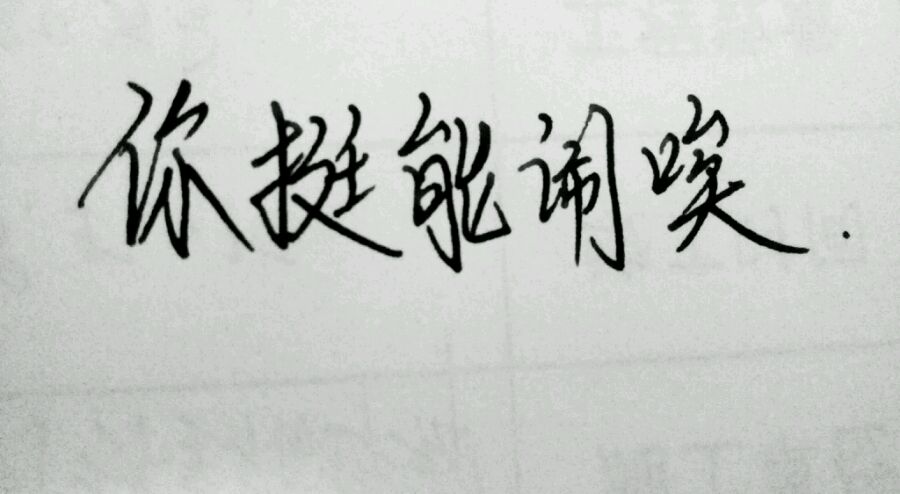 你挺能闹唉.